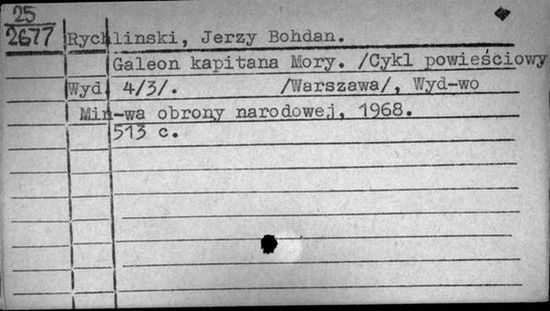 25
2677
Rychlinski, Jerzy Bohdan.
Galeon kapitana Mory. /Cykl powieściowy
Wyd 4/3/. /Warszawa/, Wyd-wo
Min-wa obrony narodowej, 1968.
513 c.